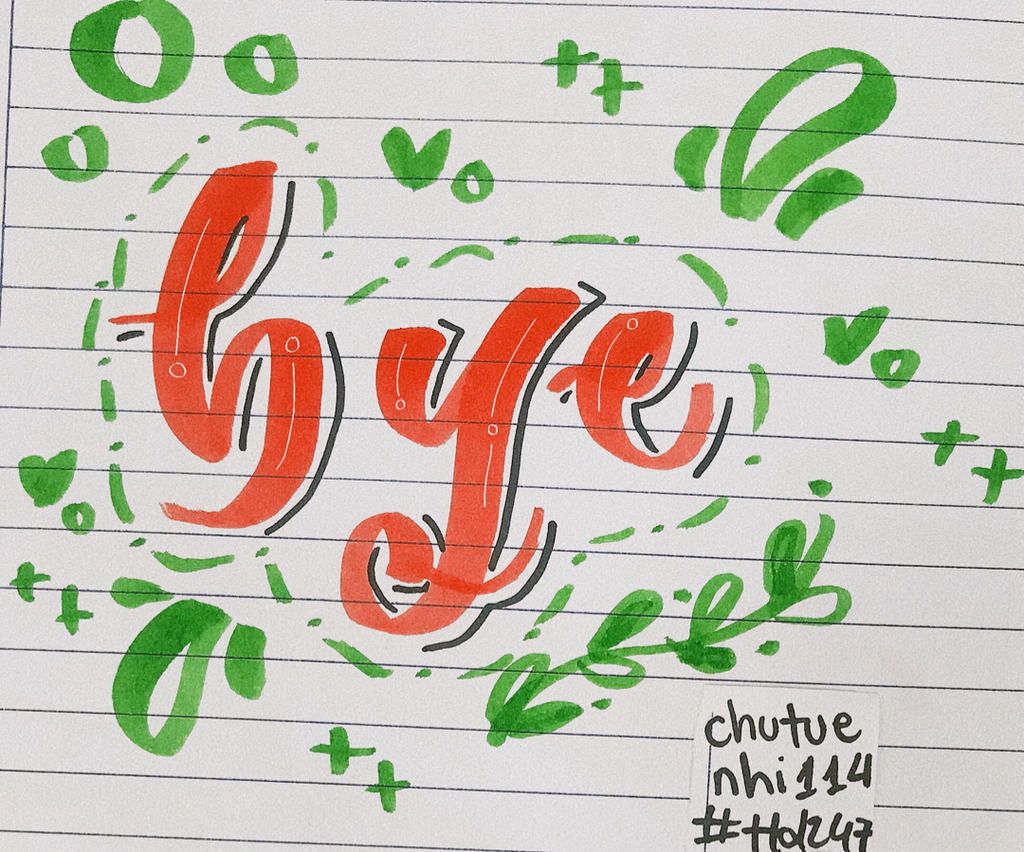 bye
chutue
nhi114
#Hd247